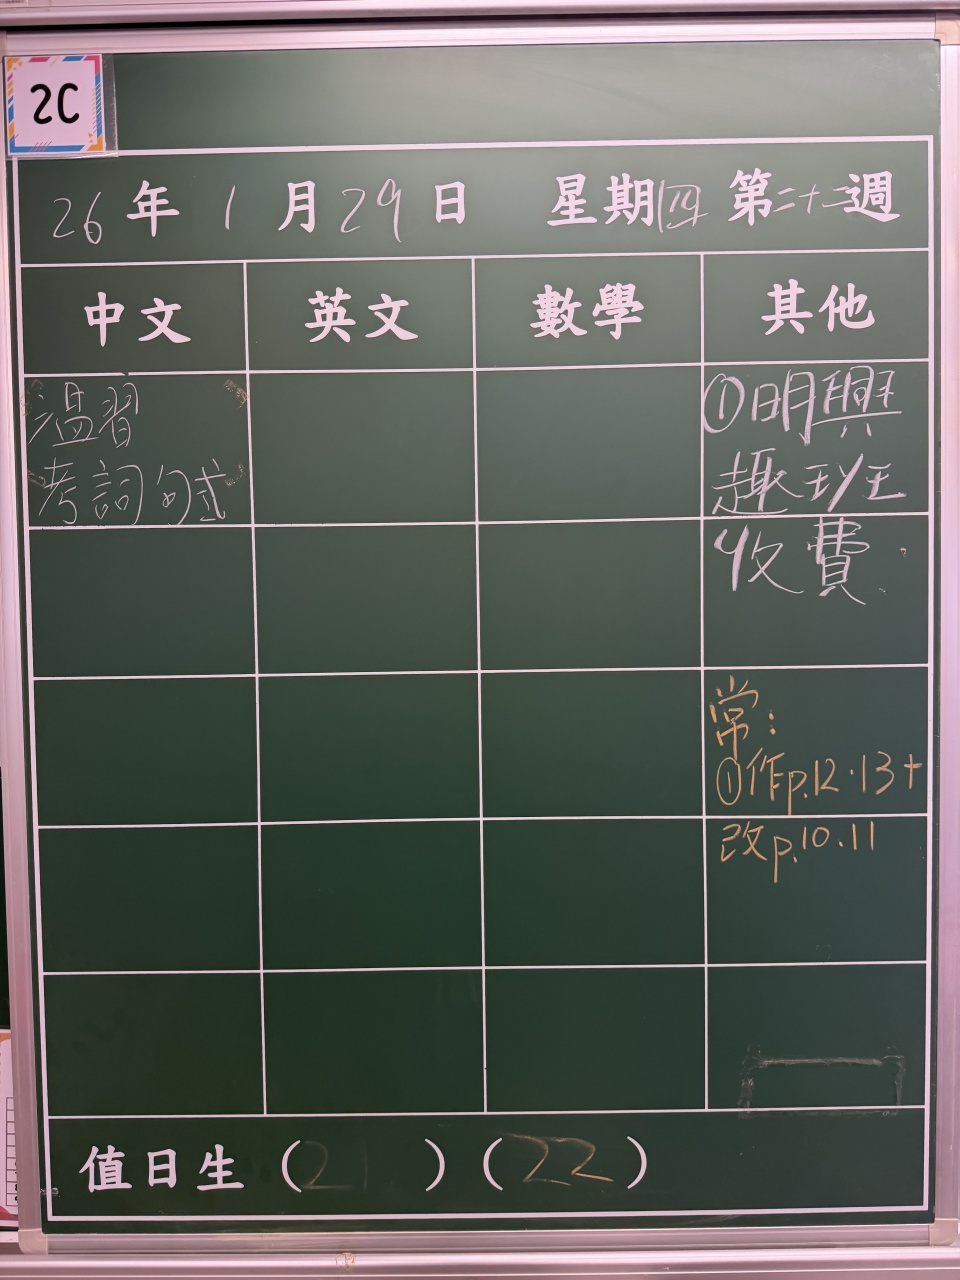 2C
26年1月29日 星期四 第二十二週
中文 英文 數學 其他
溫習
考詞句式
①明興
趣班
收費
常:
①作p.12.13+
改p.10.11
值日生(21)(22)